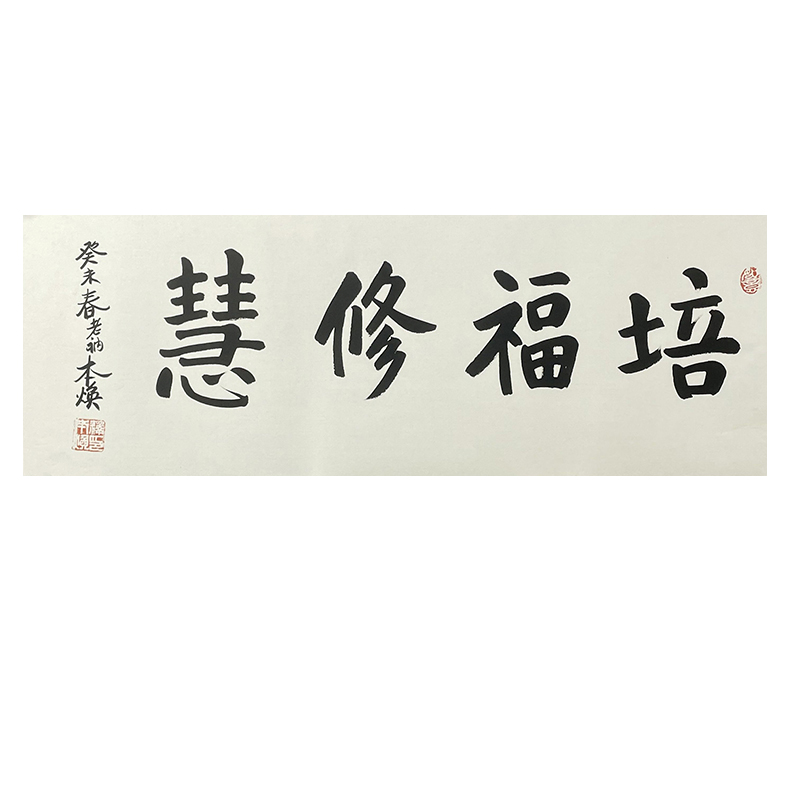 培福修慧
癸未春老衲本焕